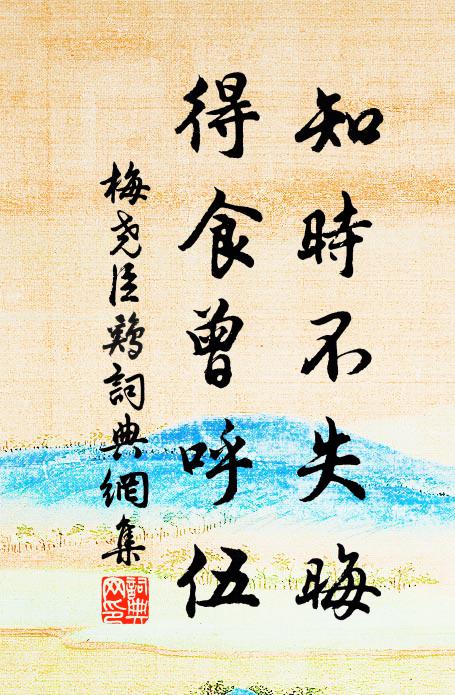 知時不失晦
得食曾呼伍
梅堯臣鷄詞典網集